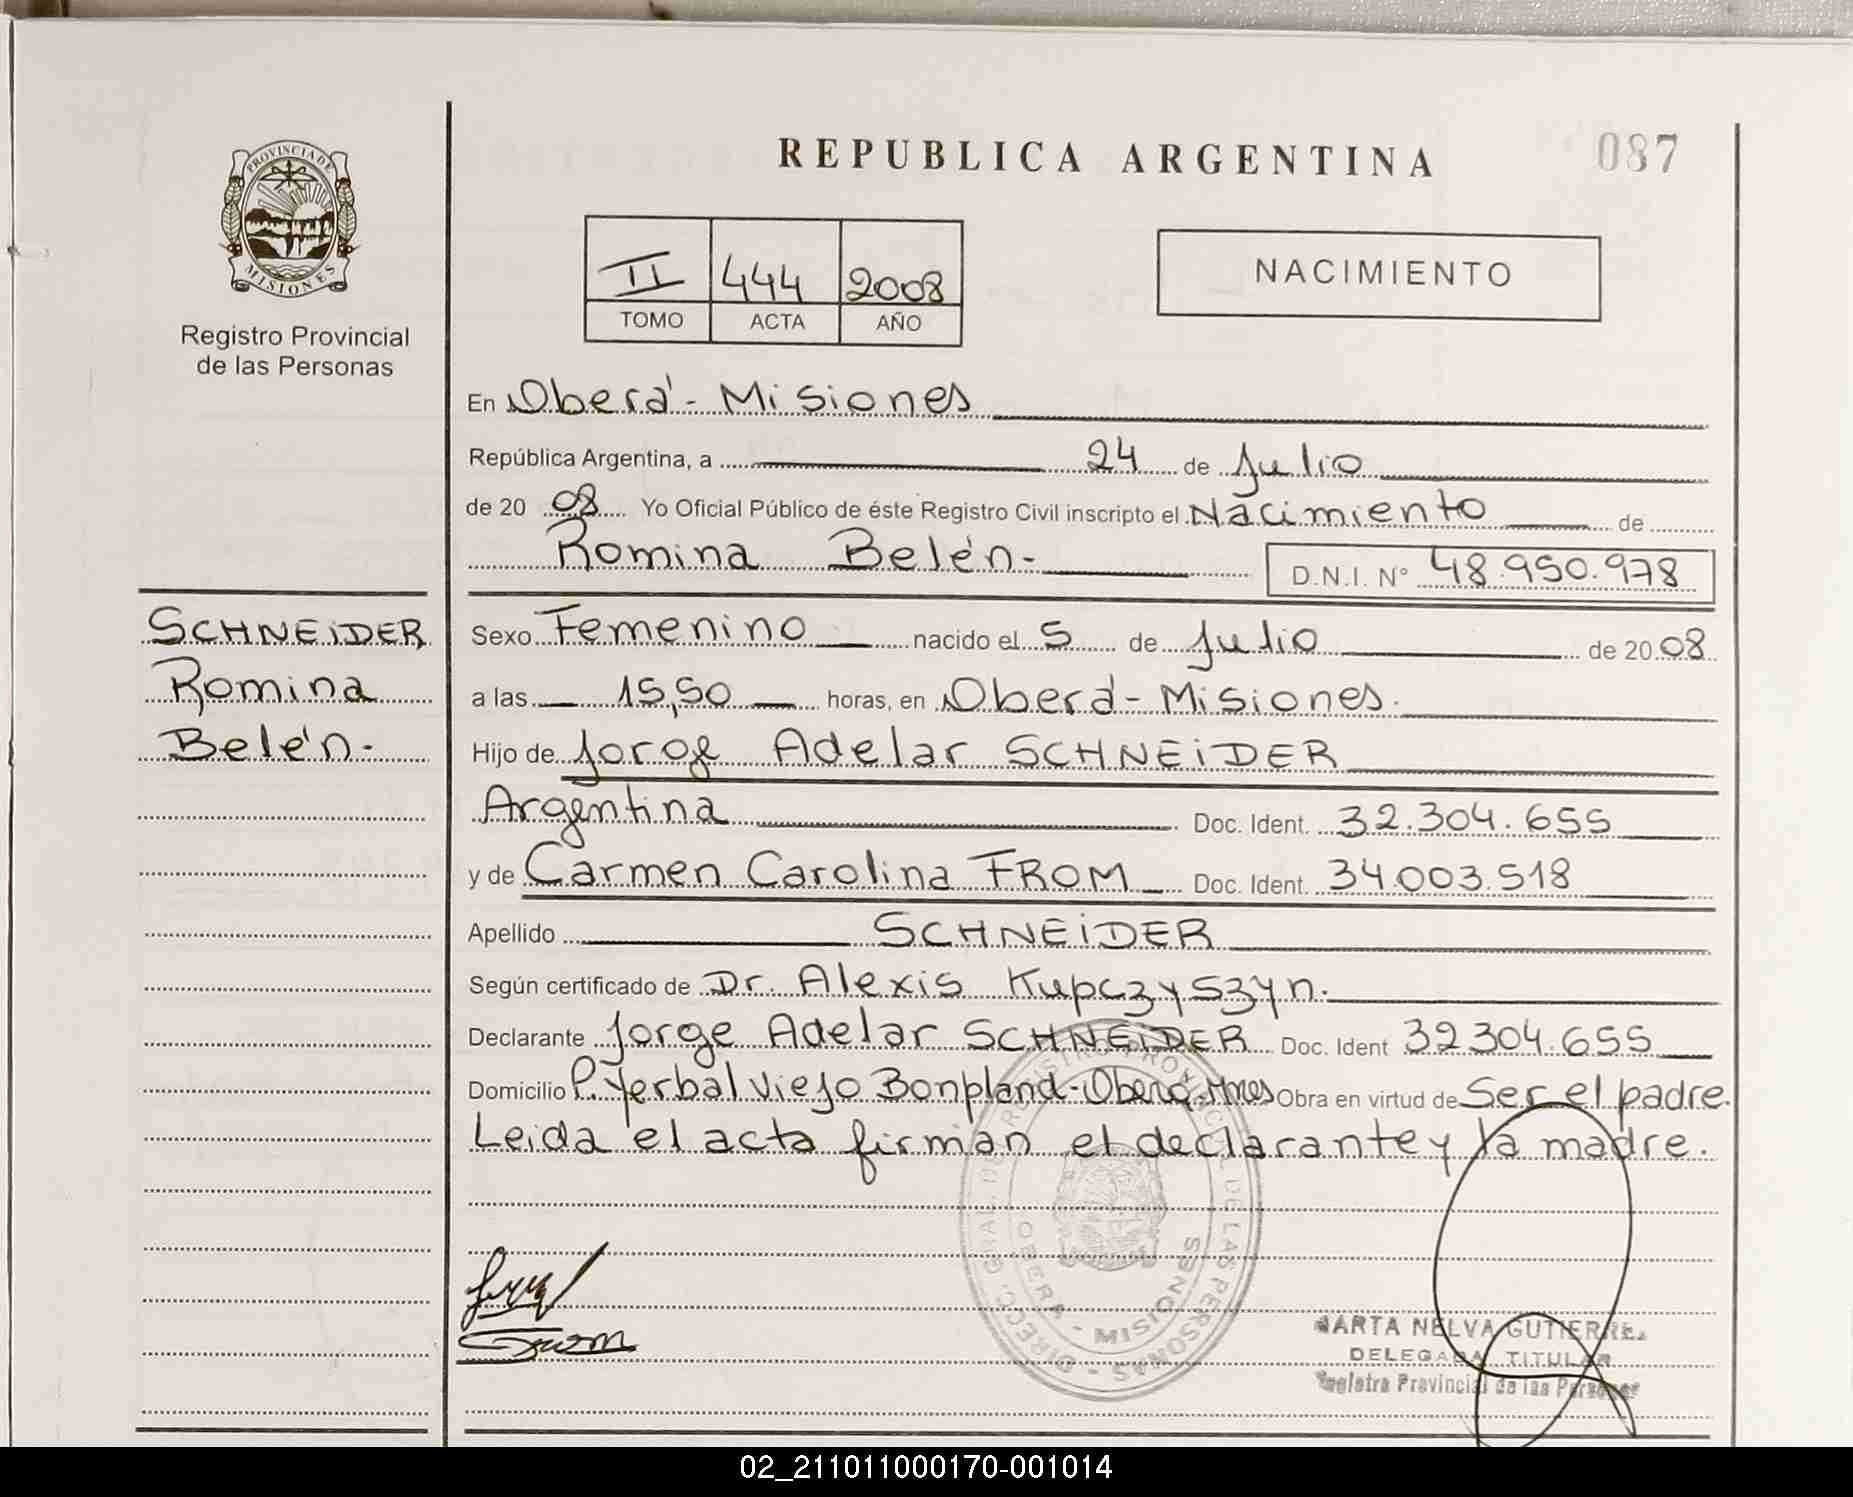 REPUBLICA ARGENTINA
087
PROVINCIA DE
MISIONES
Registro Provincial
de las Personas
II 444 2008
TOMO ACTA AÑO
NACIMIENTO
En Oberá - Misiones
República Argentina, a 24 de Julio
de 20 08 Yo Oficial Público de éste Registro Civil inscripto el Nacimiento de
Romina Belén.- D.N.I. N° 48.950.978
SCHNEiDER
Romina
Belén.-
Sexo Femenino nacido el 5 de Julio de 20 08
a las 15,50 horas, en Oberá - Misiones.
Hijo de Jorge Adelar SCHNEiDER
Argentina Doc. Ident. 32.304.655
y de Carmen Carolina FROM Doc. Ident. 34.003.518
Apellido SCHNEiDER
Según certificado de Dr. Alexis Kupczyszyn.
Declarante Jorge Adelar SCHNEiDER Doc. Ident 32304.655
Domicilio P. Yerbal Viejo Bonpland - Oberá, Mnes Obra en virtud de Ser el padre.
Leida el acta firman el declarante y la madre.
DIRECC. GRAL. DEL REGISTRO PROVINCIAL DE LAS PERSONAS
OBERA - MISIONES
From
MARTA NELVA GUTIERREZ
DELEGADA TITULAR
Registro Provincial de las Personas
02_211011000170-001014